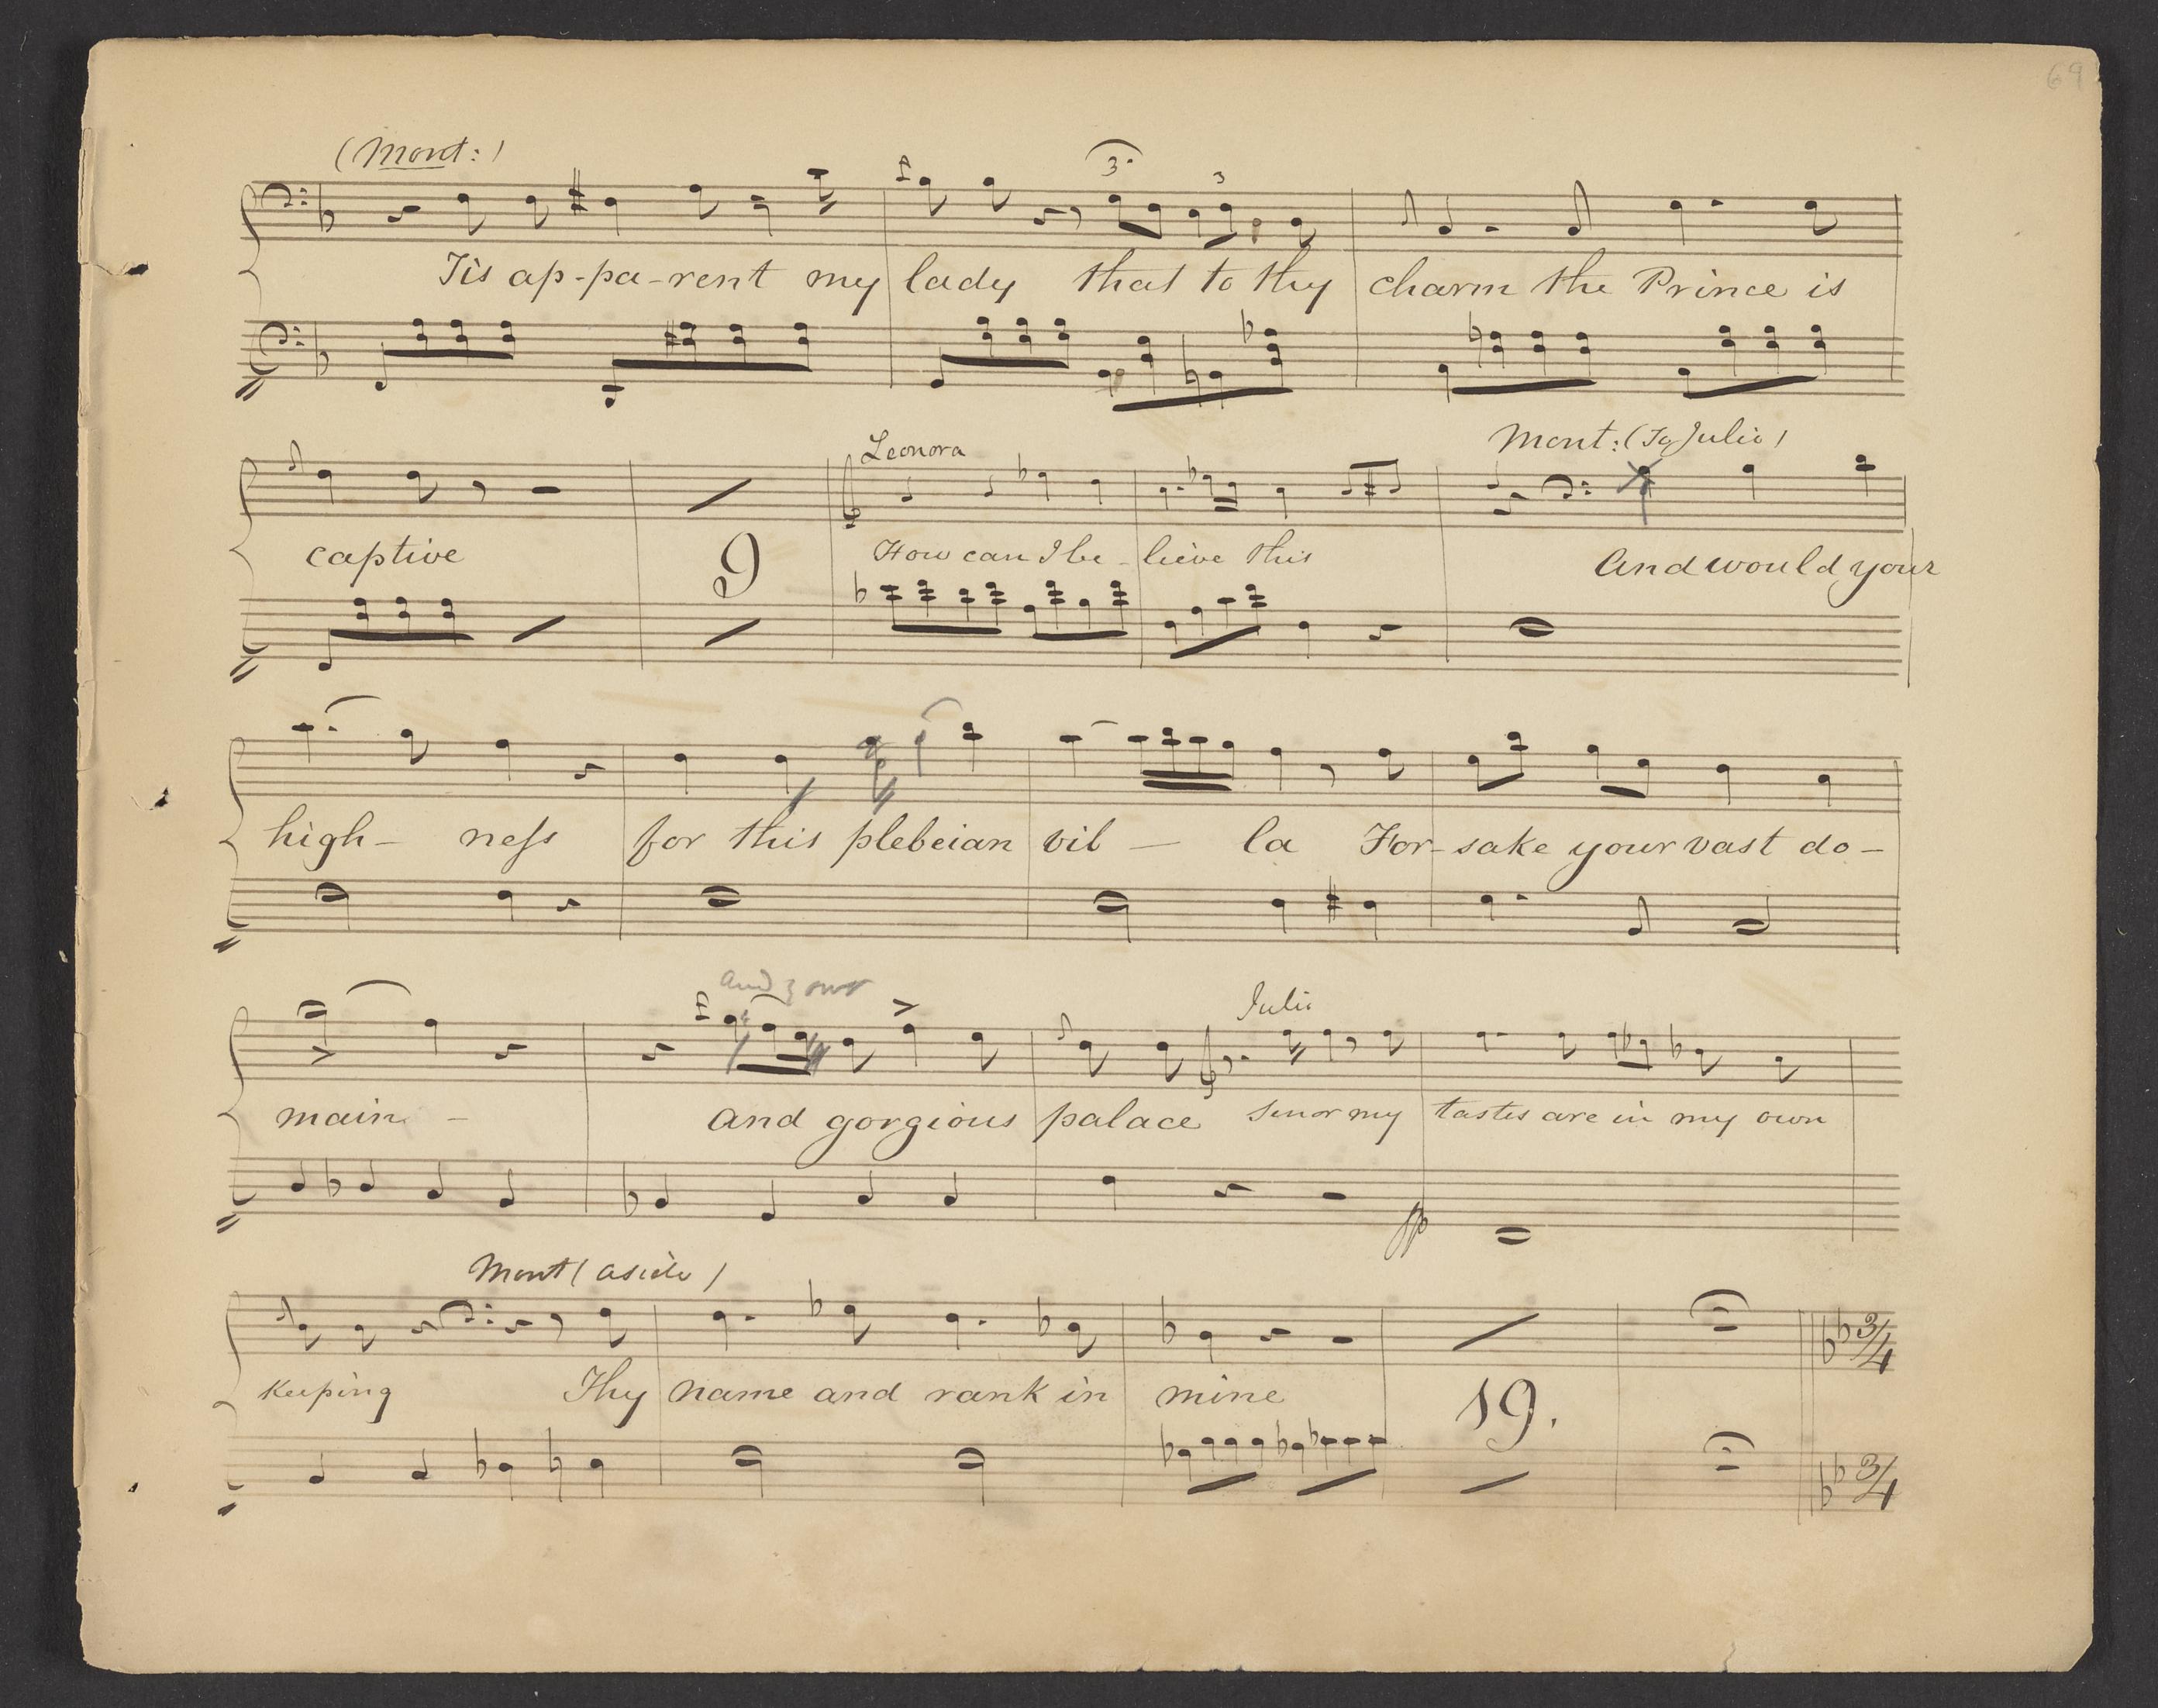 69
(Mont:)
3. 3
Tis ap-pa-rent my lady that to thy charm the Prince is
Leonora Mont: (To Julio)
captive 9 How can I be-lieve this And would your
high- neſs for this plebeian vil — la For-sake your vast do-
and your
Julio
main - and gorgious palace Senor my tastes are in my own
pp
Mont (aside)
3/4
keeping Thy name and rank in mine 19.
3/4